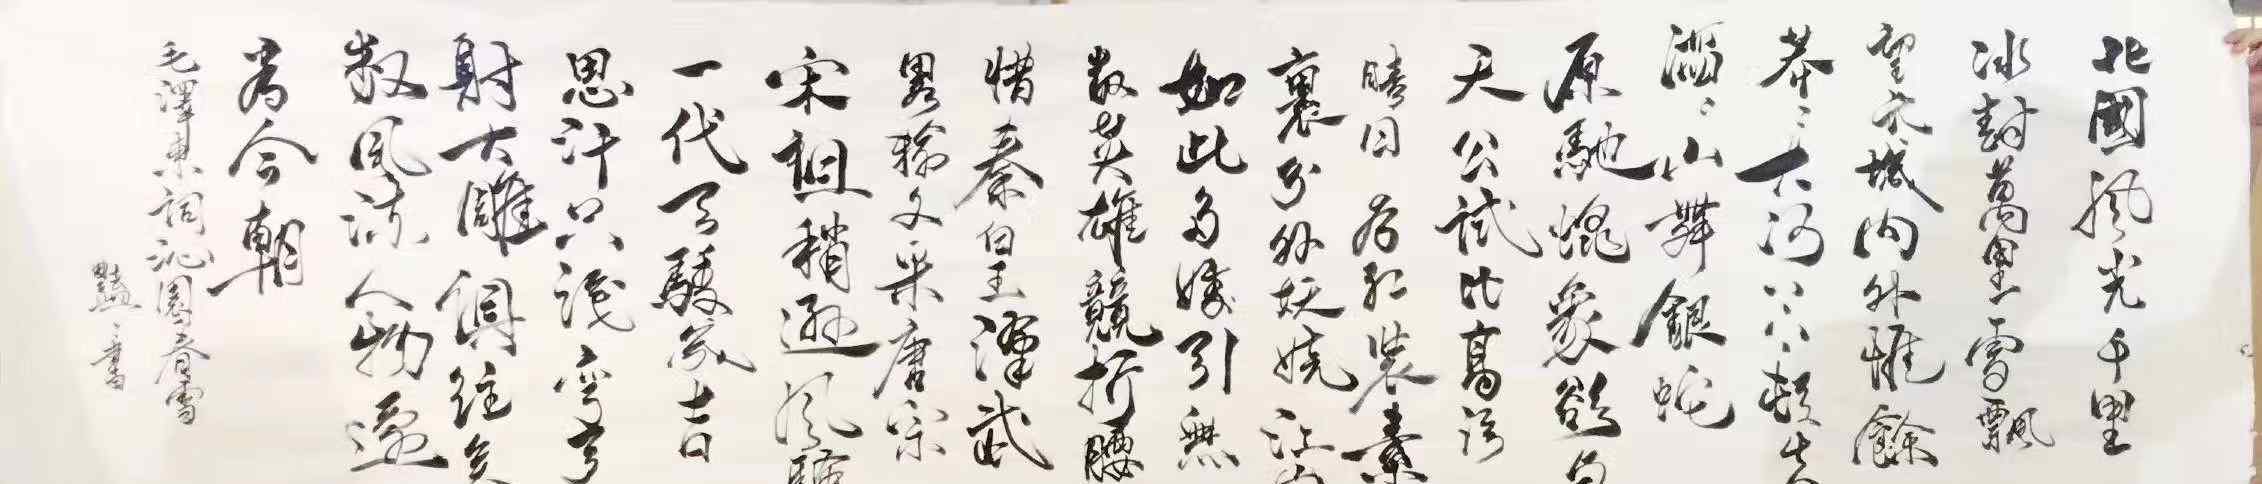 北國風光千里
冰封萬里雪飄
望长城内外惟餘
莽〻大河上下頓失
滔〻山舞銀蛇
原馳蠟象欲与
天公試比高須
晴日看红裝素
裹分外妖娆江山
如此多嬌引無
數英雄競折腰
惜秦皇漢武
畧輸文采唐宗
宋祖稍遜風騷
一代天驕成吉
思汗只識彎弓
射大雕俱往矣
數風流人物還
看今朝
毛澤東詞沁園春雪
書